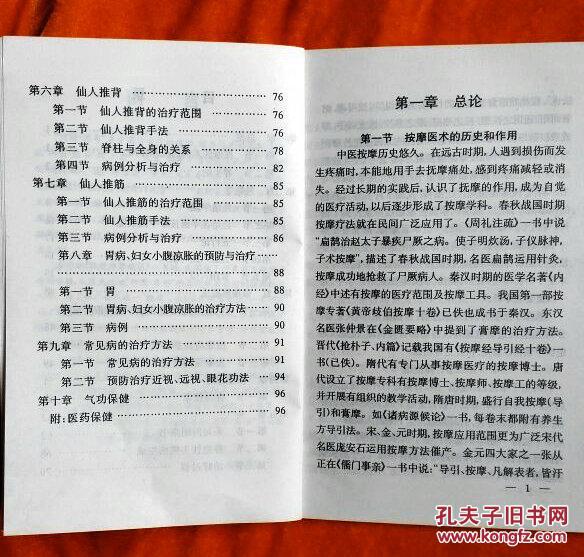 第六章 仙人推背 …………………… 76
第一节 仙人推背的治疗范围 …………… 76
第二节 仙人推背手法 …………………… 76
第三节 脊柱与全身的关系 ……………… 78
第四节 病例分析与治疗 ………………… 82
第七章 仙人推筋 …………………… 85
第一节 仙人推筋的治疗范围 …………… 85
第二节 仙人推筋手法 …………………… 85
第三节 病例分析与治疗 ………………… 86
第八章 胃病、妇女小腹凉胀的预防与治疗 ……
…………………… 88
第一节 胃 …………………… 88
第二节 胃病、妇女小腹凉胀的治疗方法 … 90
第三节 病例 …………………… 90
第九章 常见病的治疗方法 …………… 91
第一节 常见病的治疗方法 …………… 91
第二节 预防治疗近视、远视、眼花功法 … 94
第十章 气功保健 …………………… 96
附:医药保健 …………………… 96
第一章 总论
第一节 按摩医术的历史和作用
中医按摩历史悠久。在远古时期,人遇到损伤而发
生疼痛时,本能地用手去抚摩痛处,感到疼痛减轻或消
失。经过长期的实践后,认识了抚摩的作用,成为自觉
的医疗活动,以后逐步形成了按摩学科。春秋战国时期
按摩疗法就在民间广泛应用了。《周礼注疏》一书中说
“扁鹊治赵太子暴疾尸厥之病。使子明炊汤,子仪脉神,
子术按摩”,描述了春秋战国时期,名医扁鹊运用针灸、
按摩成功地抢救了尸厥病人。秦汉时期的医学名著《内
经》中述有按摩的医疗范围及按摩工具。我国第一部按
摩专著《黄帝歧伯按摩十卷》已佚也成书于秦汉。东汉
名医张仲景在《金匮要略》中提到了膏摩的治疗方法。
晋代《抢朴子、内篇》记载我国有《按摩经导引经十卷》一
书(已佚)。隋代有专门从事按摩医疗的按摩博士。唐
代设立了按摩专科有按摩博士、按摩师、按摩工的等级,
并开展有组织的教学活动,隋唐时期,盛行自我按摩(导
引)和膏摩。如《诸病源候论》一书,每卷末都附有养生
方导引法。宋、金、元时期,按摩应用范围更为广泛宋代
名医庞安石运用按摩方法催产。金元四大家之一张从
正在《儒门事亲》一书中说:“导引、按摩、凡解表者,皆汗
— 1 —
孔夫子旧书网
www.kongfz.com